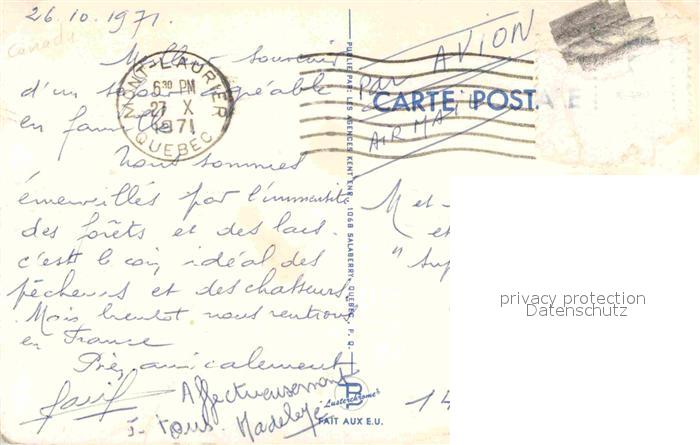 26.10.1971.
Canada
Meilleur souvenir
d'un séjour agréable
en famille
Nous sommes
émerveillés par l'immensité
des forêts et des lacs.
c'est le coin idéal des
pêcheurs et des chasseurs.
Mais bientôt nous rentrons
en France
Très amicalement
Affectueusement
à vous
MONT-LAURIER
6 30 PM
27 X
1971
QUEBEC
PUBLIÉ PAR LES AGENCES KENT ENR., 1068 SALABERRY, QUEBEC, P. Q.
Lusterchrome
FAIT AUX E.U.
PAR AVION
CARTE POSTALE
AIR MAIL
M et
et
"Sup
14
privacy protection
Datenschutz